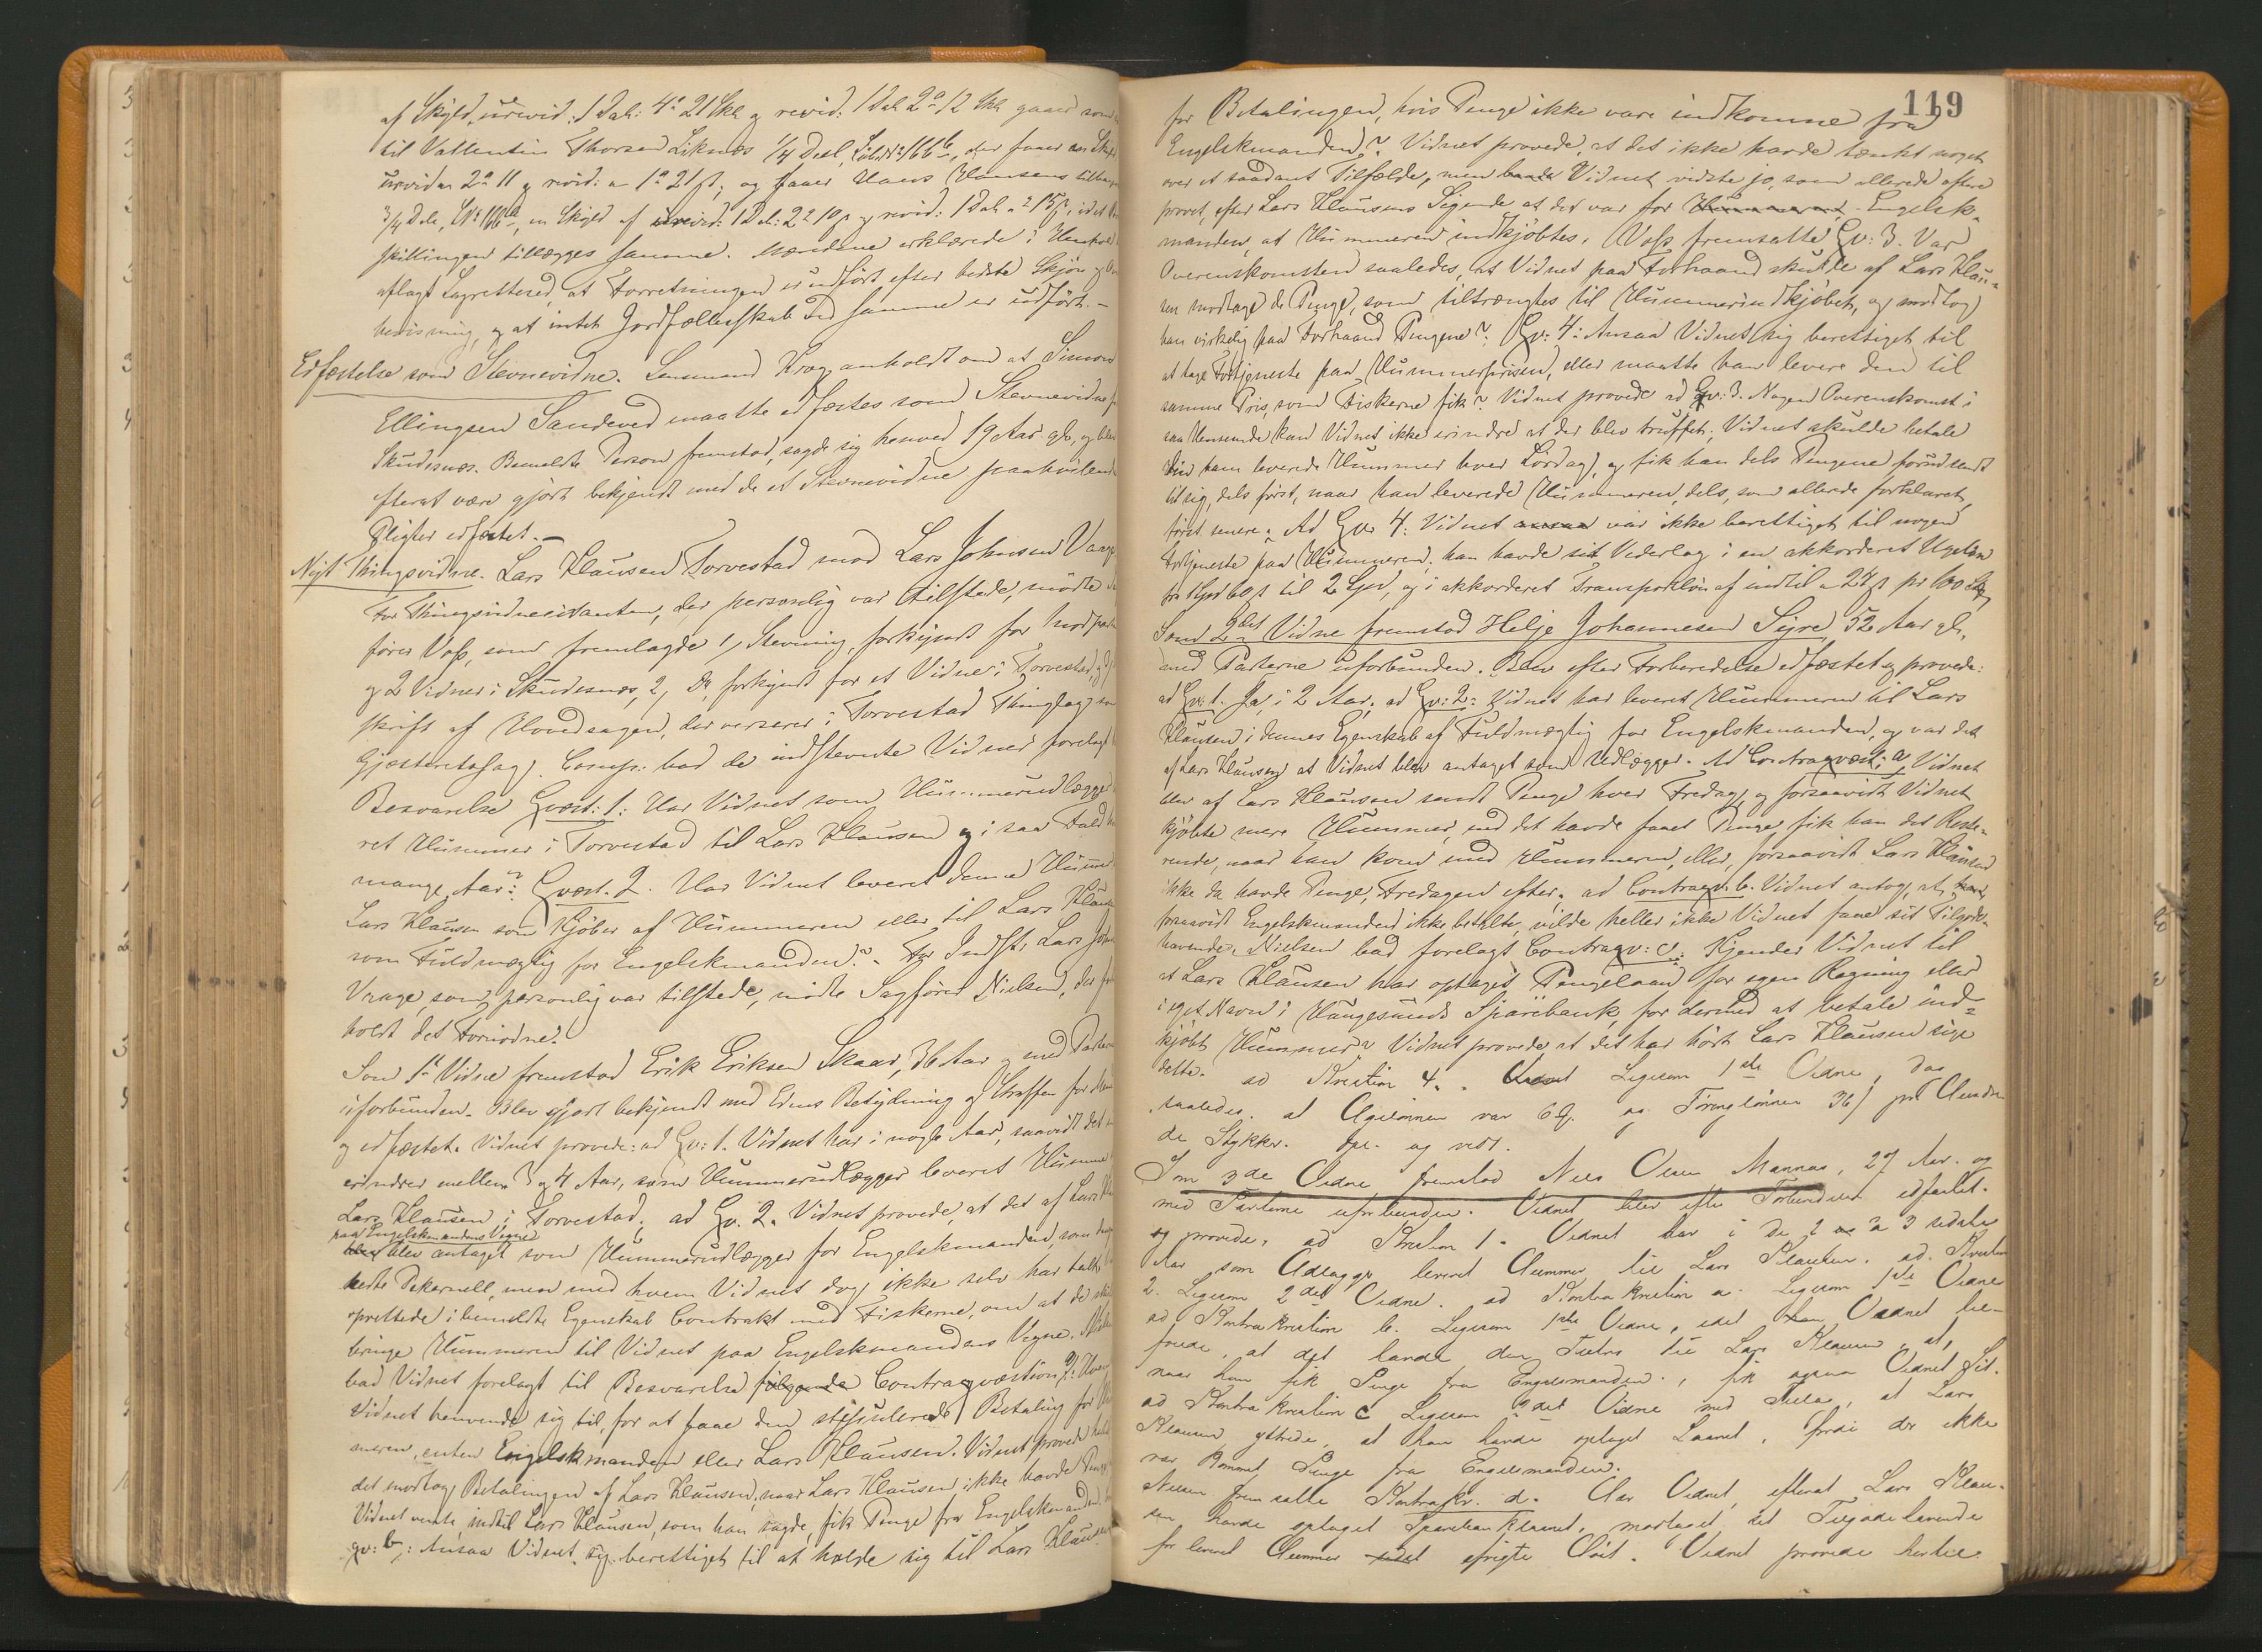 af Skyld urevid: 1 Dal: 4 21 Skl og revid: 1 Dal 2 12 Skl gaaer
til Vallentin Thorsen Liknæs 1/4 Deel, Löbno 166b, der faaer en
urevid 2 11 og revid: 1 21 og faaer Hans Hansens
3/4 Dele, LNo 166a, en Skyld af urevid: 1 Dal: 2 10 og revid: 1 Dal 15
skillingen tillægges samme. Mændene erklærede i Henhold
aflagt Lagretteseed, at Forretningen er udført efter bedste Skjøn og
bevisning, og at intet Jordfællesskab ved samme er udført.-
Edfæstelse som Stevnevidne. Lensmand Krog anholdt om at Simon
Ellingsen Sandeved maatte edfæstes som Stevnevidne
Skudesnæs. Bemeldte Person fremstod, sagde sig henved 19 Aar gl., og blev
efterat være gjort bekjendt med de et Stevnevidne paahvilende
Pligter edfæstet.-
Nyt Thingsvidne. Lars Klausen Torvestad mod Lars Johnsen Vaage
For Thingsvidnecitanten, der personlig var tilstede, mødte
fører Voss, som fremlagde 1, Stevning, forkyndt for Modparten
og 2 Vidner i Skudesnæs, 2, Do forkyndt for et Vidne i Torvestad,
skrift af Hovedsagen, der verserer i Torvestad Thinglag
Gjæsteretssag. Comp. bad de indstevnte Vidner forelagt
Besvarelse Qvæst: 1: Har Vidnet som Hummerudlægger
ret Hummer i Torvestad til Lars Klausen og i saa Fald
mange Aar? Qvæst. 2. Har Vidnet leveret denne Hummer
Lars Klausen som Kjøber af Hummeren eller til Lars Klausen
som Fuldmægtig for Engelskmanden? For Indst. Lars
Vaage, som personlig var tilstede, mødte Sagfører Nielsen, der
holdt det Fornødne.
Som 1ste Vidne fremstod Erik Eriksen Skaar, 36 Aar og med Parterne
uforbunden. Blev gjort bekjendt med Edens Betydning og Straffen for
og edfæstet. Vidnet provede: ad Qv: 1. Vidnet har i nogle Aar, saavidt det
erindrer mellem 3 og 4 Aar, som Hummerudlægger leveret Hummer
Lars Klausen i Torvestad. ad Qv. 2. Vidnet provede, at det af Lars
paa Engelskmandens Vegne
blev antaget som Hummerudlægger for Engelskmanden, som
hedte Pekernell, men med hvem Vidnet dog ikke selv har talt
oprettede i bemeldte Egenskab Contrakt med Fiskerne, om at de
bringe Hummeren til Vidnet paa Engelskmandens Vegne.
bad Vidnet forelagt til Besvarelse følgende Contraqvæstion a:
Vidnet henvende sig til, for at faae den stipulerede Betaling for
meren, enten Engelskmanden eller Lars Klausen. Vidnet provede
det modtog Betalingen af Lars Klausen, naar Lars Klausen ikke havde Penge
Vidnet vente, indtil Lars Klausen, som han sagde, fik Penge fra Engelskmanden.
qv: b,: Ansaa Vidnet sig berettiget til at holde sig til Lars Klausen
119
for Betalingen, hvis Penge ikke vare indkomne fra
Engelskmanden? Vidnet provede, at det ikke havde tænkt noget
over et saadant Tilfælde, men Vidnet vidste jo, som allerede oftere
provet, efter Lars Klausens Sigende at det var for Engelsk-
manden, at Hummeren indkjøbtes. Voss fremsatte Qv: 3. Var
Overenskomsten saaledes, at Vidnet paa Forhaand skulde af Lars Klau-
sen modtage de Penge, som tiltrængtes til Hummerindkjøbet, og modtog
han virkelig paa Forhaand Pengene? Qv: 4: Ansaa Vidnet sig berettiget til
at tage Fortjeneste paa Hummerprisen, eller maatte han levere den til
samme Pris, som Fiskerne fik? Vidnet provede ad Qv: 3. Nogen Overenskomst i
saa Henseende kan Vidnet ikke erindre at der blev truffet; Vidnet skulde betale
den ham leverede Hummer hver Lørdag, og fik han dels Pengene forudsendt
til sig, dels først, naar han leverede Hummeren, dels, som allerede forklaret,
først senere. Ad Qv: 4: Vidnet var ikke berettiget til nogen
Fortjeneste paa Hummeren; han havde sit Vederlag i en akkorderet Ugeløn
fra 1 Spd 60 s til 2 Spd, og i akkorderet Transportløn af indtil 24 s pr 100 Stk
Som 2det Vidne fremstod Helje Johannesen Syre, 52 Aar gl.,
med Parterne uforbunden. Blev efter Forberedelse edfæstet og provede:
ad Qv. 1. Ja, i 2 Aar. ad Qv: 2: Vidnet har leveret Hummeren til Lars
Klausen i dennes Egenskab af Fuldmægtig for Engelskmanden, og var det
af Lars Klausen at Vidnet blev antaget som Udlægger. Ad Contraqvæst: a, Vidnet
blev af Lars Klausen sendt Penge hver Fredag, og forsaavidt Vidnet
kjøbte mere Hummer, end det havde faaet Penge, fik han det Reste-
rende, naar han kom med Hummeren, eller, forsaavidt Lars Klausen
ikke da havde Penge, Fredagen efter. ad Contraqv. b. Vidnet antog, at
forsaavidt Engelskmanden ikke betalte, vilde heller ikke Vidnet faae sit Tilgode-
havende. Nielsen bad forelagt Contraqv: c. Kjender Vidnet til
at Lars Klausen har optaget Pengelaan for egen Regning eller
i eget Navn i Haugesunds Sparebank, for dermed at betale ind-
kjøbt Hummer? Vidnet provede, at det har hørt Lars Klausen sige
dette. ad Kvæstion 4. Ligesom 1ste Vidne, dog
saaledes at Ugelønnen var 60 og Føringlønnen 36 pr Hundre
de Stykker. Opl. og vedt.
Som 3de Vidne fremstod Nils Olsen Mannæs, 27 Aar. og
med Parterne uforbunden. Vidnet blev efter Forberedelse edfæstet.
og provede, ad Kvæstion 1. Vidnet har i de 2 a 3 sidste
Aar som Udlægger leveret Hummer til Lars Klausen. ad. Kvæstion
2. Ligesom 2det Vidne. ad Kontra kvæstion a. Ligesom 1ste Vidne
ad Kontra kvæstion b. Ligesom 1ste Vidne, idet Vidnet til-
føiede, at det havde den Tiltro til Lars Klausen, at,
naar han fik Penge fra Engelsmanden, fik ogsaa Vidnet Sit.
ad Kontra kvæstion c Ligesom 2det Vidne med Tillæg, at Lars
Klausen yttrede, at han havde optaget Laanet, fordi der ikke
var kommet Penge fra Engelsmanden.
Nielsen fremsatte Kontrakv. d. Har Vidnet, efterat Lars Klau-
sen havde optaget Sparebanklaanet, modtaget sit Tilgodehavende
for leveret Hummer sidst afvigte Høst. Vidnet provede hertil